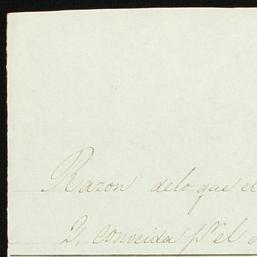 Razon delo que el
Y, conocida pr el